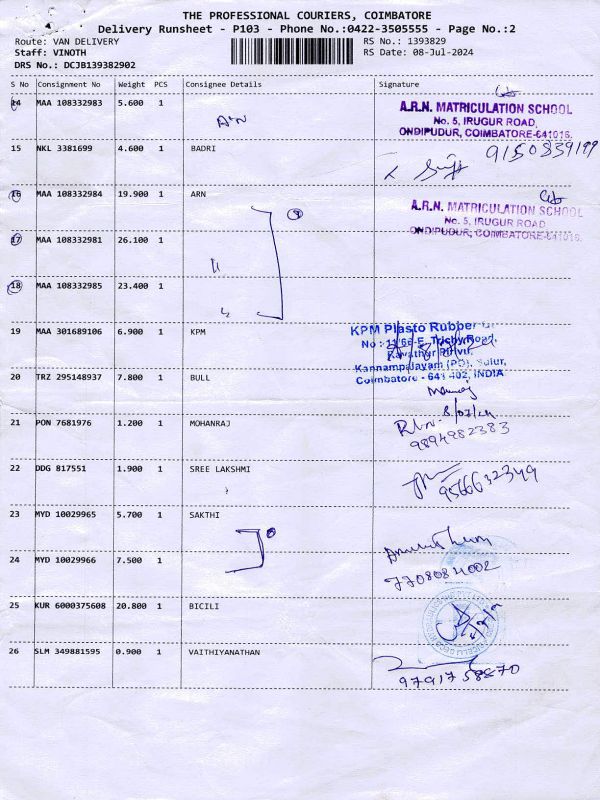 THE PROFESSIONAL COURIERS, COIMBATORE
Delivery Runsheet - P103 - Phone No.:0422-3505555 - Page No.:2
Route: VAN DELIVERY RS No.: 1393829
Staff: VINOTH RS Date: 08-Jul-2024
DRS No.: DCJB139382902
S No Consignment No Weight PCS Consignee Details Signature
14 MAA 108332983 5.600 1 ARN
A.R.N. MATRICULATION SCHOOL
No. 5, IRUGUR ROAD,
ONDIPUDUR, COIMBATORE-641016.
15 NKL 3381699 4.600 1 BADRI 9150839199
16 MAA 108332984 19.900 1 ARN
A.R.N. MATRICULATION SCHOOL
No. 5, IRUGUR ROAD
ONDIPUDUR, COIMBATORE-641016.
17 MAA 108332981 26.100 1
18 MAA 108332985 23.400 1
19 MAA 301689106 6.900 1 KPM
KPM Plasto Rubber
No : 11/66-E, Trichy Road,
Kannampalayam (PO), Sulur,
Coimbatore - 641 402, INDIA
20 TRZ 295148937 7.800 1 BULL
8/07/24
21 PON 7681976 1.200 1 MOHANRAJ
9894982383
22 DDG 817551 1.900 1 SREE LAKSHMI 9566632349
23 MYD 10029965 5.700 1 SAKTHI
24 MYD 10029966 7.500 1 7708084002
25 KUR 6000375608 20.800 1 BICILI
26 SLM 349881595 0.900 1 VAITHIYANATHAN
9791758870